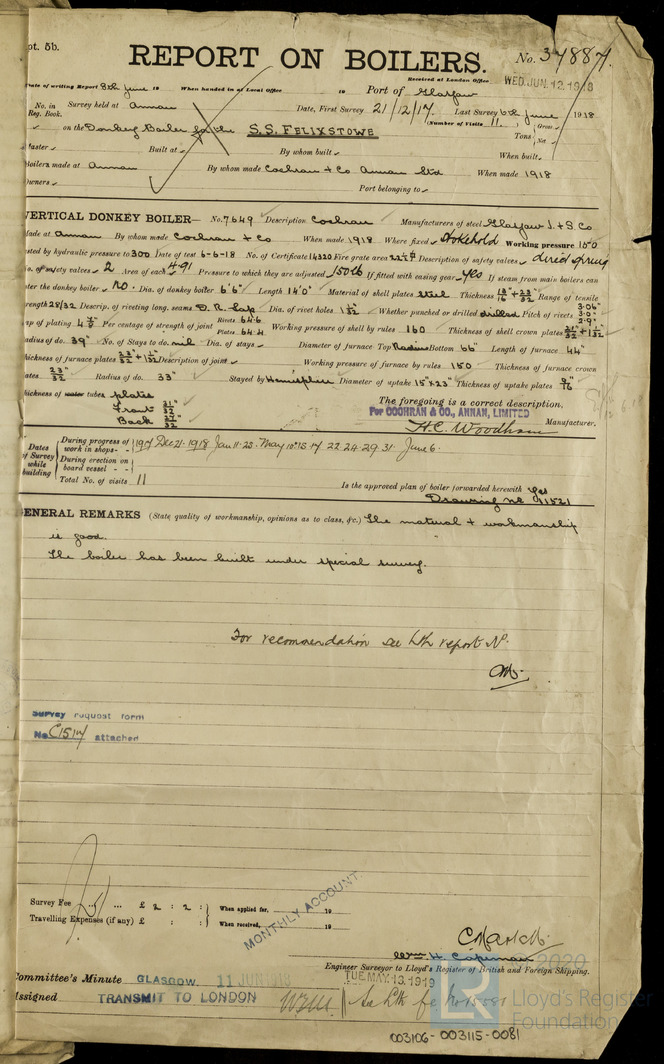 pt. 5b.
REPORT ON BOILERS.
No. 37884
Received at London Office WED. JUN. 12. 1918
Date of writing Report 8th June 19 When handed in at Local Office 19 Port of Glasgow
No. in Reg. Book. Survey held at Annan Date, First Survey 21/12/17 Last Survey 6th June 1918
(Number of Visits 11.)
on the Donkey Boiler for the S.S. FELIXSTOWE Tons Gross Net
Master Built at By whom built When built
Boilers made at Annan By whom made Cochran & Co Annan Ltd When made 1918
Owners Port belonging to
VERTICAL DONKEY BOILER— No. 7649 Description Cochran Manufacturers of steel Glasgow I. & S. Co
Made at Annan By whom made Cochran & Co When made 1918 Where fixed Stokehold Working pressure 150
tested by hydraulic pressure to 300 Date of test 6-6-18 No. of Certificate 14320 Fire grate area Description of safety valves direct spring
No. of safety valves 2 Area of each 4.91 Pressure to which they are adjusted 150 lb If fitted with easing gear yes If steam from main boilers can
enter the donkey boiler no. Dia. of donkey boiler 6'6" Length 14'0" Material of shell plates steel Thickness 13/16" + 23/32" Range of tensile
strength 28/32 Descrip. of riveting long. seams D.R. Lap Dia. of rivet holes 1 5/32" Whether punched or drilled drilled Pitch of rivets 3.06" 3.0" 2.9"
Lap of plating Per centage of strength of joint Rivets 64.6 Plates 64.4 Working pressure of shell by rules 160 Thickness of shell crown plates
Radius of do. 39" No. of Stays to do. nil Dia. of stays Diameter of furnace Top Radius Bottom 66" Length of furnace 44"
Thickness of furnace plates Description of joint Working pressure of furnace by rules 150 Thickness of furnace crown
plates 23/32" Radius of do. 33" Stayed by Hemisphere Diameter of uptake 15" x 23" Thickness of uptake plates 9/16"
Thickness of water tubes plates
Front 31/32"
Back 27/32"
The foregoing is a correct description,
For COCHRAN & CO., ANNAN, LIMITED
H. C. Woodham Manufacturer.
Dates of Survey while building
During progress of work in shops - - 1917 Dec 21. 1918 Jan 11. 23. May 10. 15. 17 22. 24. 29. 31. June 6.
During erection on board vessel - -
Total No. of visits 11
Is the approved plan of boiler forwarded herewith Yes
Drawing No 11521
GENERAL REMARKS (State quality of workmanship, opinions as to class, &c.) The material & workmanship
is good.
The boiler has been built under special survey.
For recommendation see Lth report No.
Survey request form
No. C1514 attached
Survey Fee ... ... £ 2 : 2 :
Travelling Expenses (if any) £ : :
When applied for, 19
When received, 19
MONTHLY ACCOUNT
Wm H. Copeman
Engineer Surveyor to Lloyd's Register of British and Foreign Shipping.
Committee's Minute GLASGOW. 11 JUN 1918 TUE. MAY. 13. 1919
Assigned TRANSMIT TO LONDON
2020
LR
Lloyd's Register
Foundation
003106-003115-0081